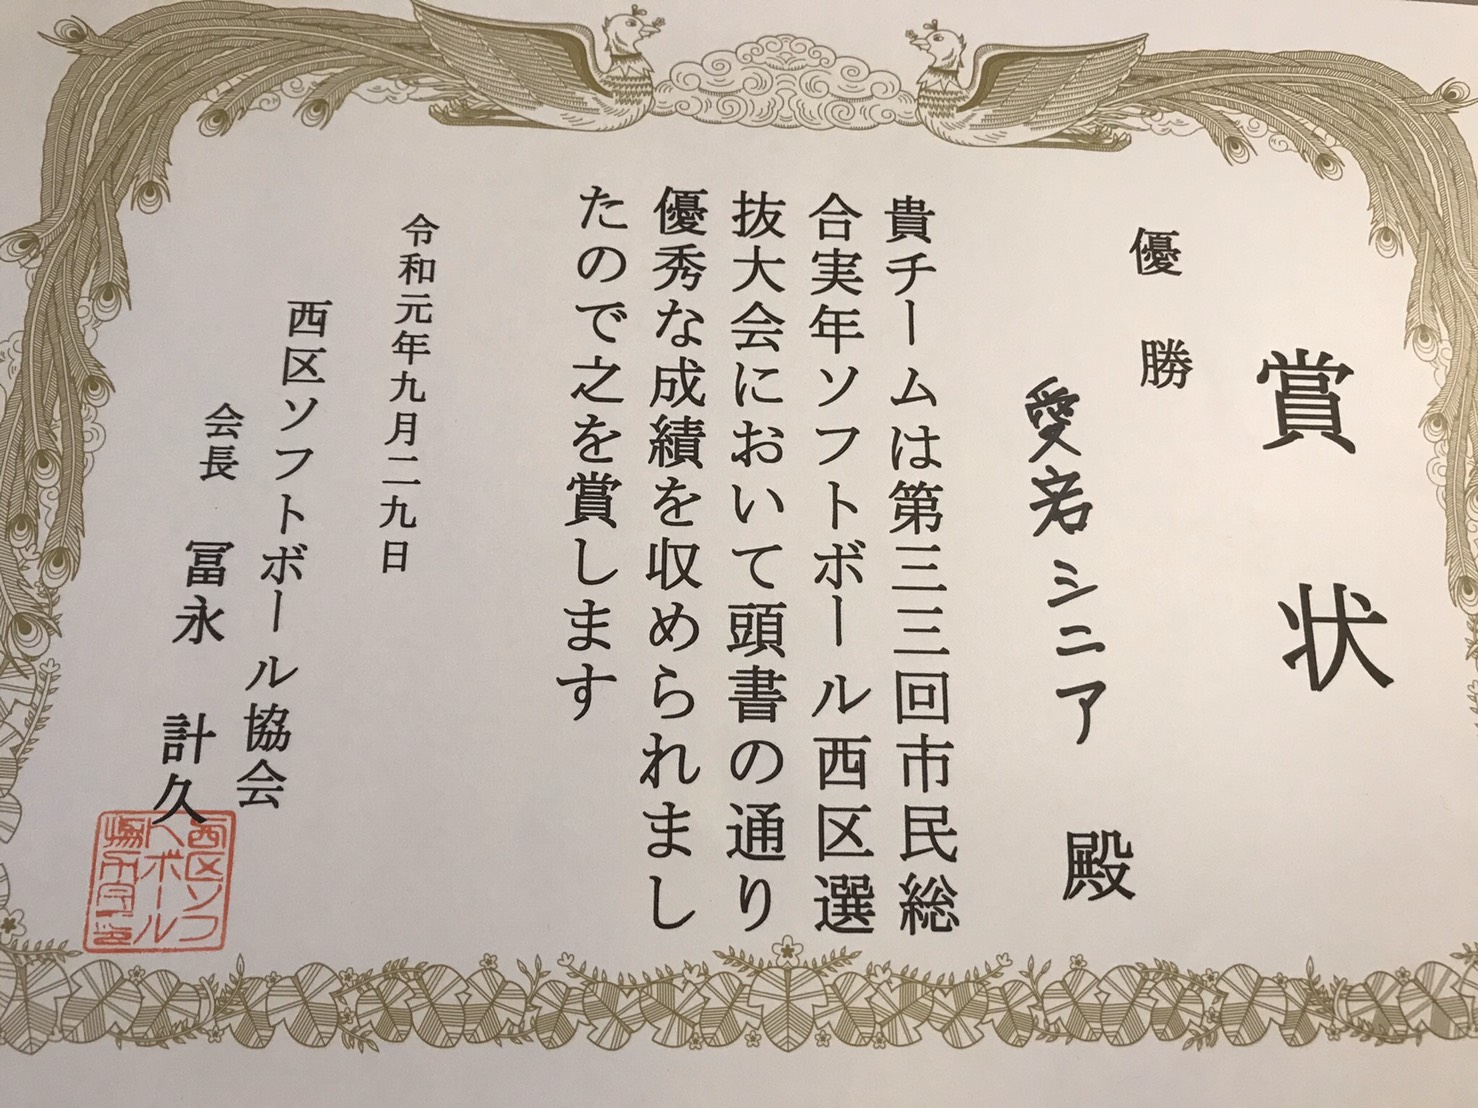 賞状
優勝
愛宕シニア 殿
貴チームは第三三回市民総
合実年ソフトボール西区選
抜大会において頭書の通り
優秀な成績を収められまし
たので之を賞します
令和元年九月二九日
西区ソフトボール協会
会長 冨永 計久
西区ソフ
トボール